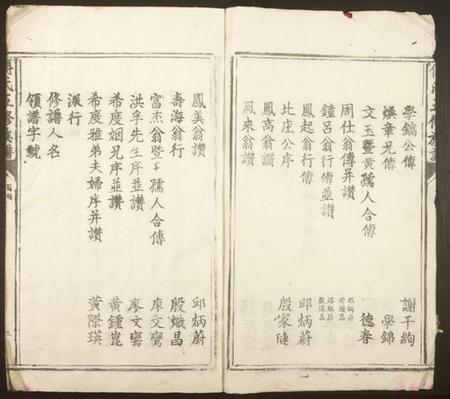 學鎬公傳 謝千絢
煥華兄傳 學錦
文玉暨黄孺人合傳 德春
周仕翁傳并讚
鐘呂翁行傳並讚
鳳起翁行傳 邱炳蔚
比庄公序 殷家璉
鳳高翁讚
鳳來翁讚
鳳美翁讚 邱炳蔚
壽海翁行 殷熾昌
富杰翁暨王孺人合傳 廖文鸞
洪孚先生序並讚 廖文鸞
希度姻兄序並讚 黄鍾崑
希度雅弟夫婦序并讚 黄際瑛
派行
修譜人名
領譜字號